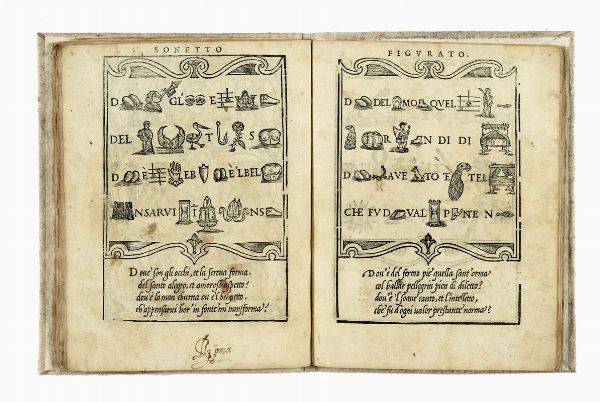 SONETTO
D GL' E
DEL T S
D È EB ÈLBEL
NSARVI NS
Doue son gli occhi, et la serena forma
del santo alegro, et amoroso aspetto?
dou'è la man eburna ou'è'l bel petto
ch'appensarui hor' in fonte mi transforma?
FIGVRATO.
D DEL MO QVEL
R N DI DI
D AVE TO E TEL
CHE FVD VAL P NEN
Dou'è del fermo piè quella sant'orma
col ballar pellegrin pien di diletto?
dou'è'l soaue canto, et l'intelletto,
che fu d'ogni valor prestante norma?